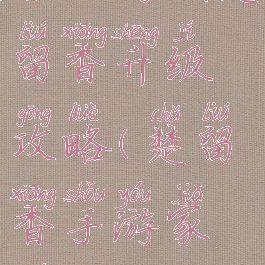 liú xiāng shēng jí
留香升级
gōng lüè chǔ liú
攻略(楚留
xiāng shǒu yóu jiā
香手游家